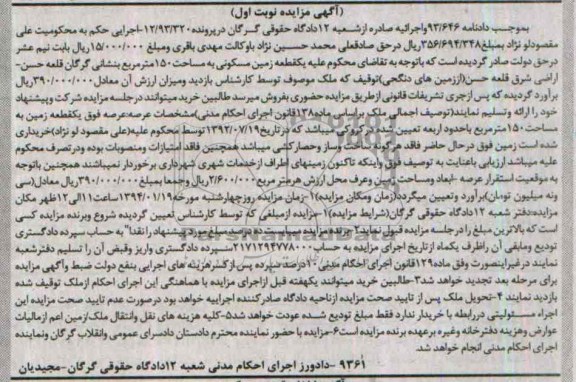 (آگهی مزایده نوبت اول)
بموجب دادنامه ۹۳/۶۴۶واجرائیه صادره ازشعبه ۱۲دادگاه حقوقی گرگان درپرونده۱۲/۹۳/۳۲۰-اجرایی حکم به محکومیت علی
مقصودلو نژاد بمبلغ۳۵۶/۶۹۴/۳۴۸ریال درحق صادقعلی محمد حسین نژاد باوکالت مهدی باقری ومبلغ ۱۵/۰۰۰/۰۰۰ریال بابت نیم عشر
درحق دولت صادر گردیده است که باتوجه به تقاضای محکوم علیه یکقطعه زمین مسکونی به مساحت ۱۵۰مترمربع بنشانی گرگان قلعه حسن-
اراضی شرق قلعه حسن(اززمین های دنگچی)توقیف که ملک موصوف توسط کارشناس بازدید ومیزان ارزش آن معادل۳۹۰/۰۰۰/۰۰۰ریال
برآورد گردیده که پس ازجری تشریفات قانونی ازطریق مزایده حضوری بفروش میرسد طالبین خرید میتوانند درجلسه مزایده شرکت وپیشنهاد
خود را ارائه وتسلیم نمایند(توصیف اجمالی ملک براساس ماده۱۳۸قانون اجرای احکام مدنی)مشخصات عرصه:عرصه فوق یکقطعه زمین به
مساحت ۱۵۰مترمربع باحدود اربعه تعیین شده در کروکی میباشد که درتاریخ۱۳۹۲/۰۷/۱۹توسط محکوم علیه(علی مقصود لو نژاد)خریداری
شده است زمین فوق درحال حاضر فاقد هرگونه ساخت وساز وحصارکشی میباشد همچنین فاقد امتیازات ومنصوبات بوده ودرتصرف محکوم
علیه میباشد ارزیابی باعنایت به توصیف فوق واینکه تاکنون زمینهای اطراف ازخدمات شهری شهرداری برخوردار نمیباشند همچنین باتوجه
به موقعیت استقرار عرصه -ابعاد ومساحت زمین وعرف محل ارزش هرمتر مربع۲/۶۰۰/۰۰۰ریال وجمعا بمبلغ۳۹۰/۰۰۰/۰۰۰ریال معادل(سی
ونه میلیون تومان)برآورد وتعیین میگردد(زمان ومکان مزایده)۱-زمان مزایده روزچهارشنبه مورخه۱۳۹۴/۰۱/۱۹ساعت۱۱الی۱۲ظهر مکان
مزایده:دفتر شعبه ۱۲دادگاه حقوقی گرگان(شرایط مزایده)۱-مزایده ازمبلغی که توسط کارشناس تعیین گردیده شروع وبرنده مزایده کسی
است که بالاترین مبلغ را درجلسه مزایده قبول نماید۲-برنده مزایده میبایست ده درصد مبلغ پیشنهاد را نقدا" به حساب سپرده دادگستری
تودیع ومابقی آن راظرف یکماه ازتاریخ اجرای مزایده به حساب۲۱۷۱۲۹۴۷۷۸۰۰۰سپرده دادگستری واریز وقبض آن را تسلیم دفترشعبه
نمایند درغیراینصورت وفق ماده۱۲۹قانون اجرای احکام مدنی ۱۰درصد سپرده پس از کسرهزینه های اجرایی بنفع دولت ضبط وآگهی مزایده
برای مرحله بعد تجدید خواهد شد۳-طالبین خرید میتوانند یکهفته قبل ازاجرای مزایده با هماهنگی این اجرای احکام ازملک توقیف شده
بازدید نمایند ۴-تحویل ملک پس از تایید صحت مزایده ازناحیه دادگاه صادرکننده اجراییه خواهد بود درصورت عدم تایید صحت مزایده این
اجراء مسئولیتی دررابطه با خریدار ندارد فقط مبلغ تودیع شده عودت خواهد شد۵-کلیه هزینه های نقل وانتقال ملک/زمین اعم ازمالیات
عوارض وهزینه دفترخانه وغیره برعهده برنده مزایده است۶-مزایده با حضور نماینده محترم دادستان دادسرای عمومی وانقلاب گرگان ونماینده
اجرای احکام مدنی انجام خواهد شد.
۹۳۶۱ -دادورز اجرای احکام مدنی شعبه ۱۲دادگاه حقوقی گرگان-مجیدیان